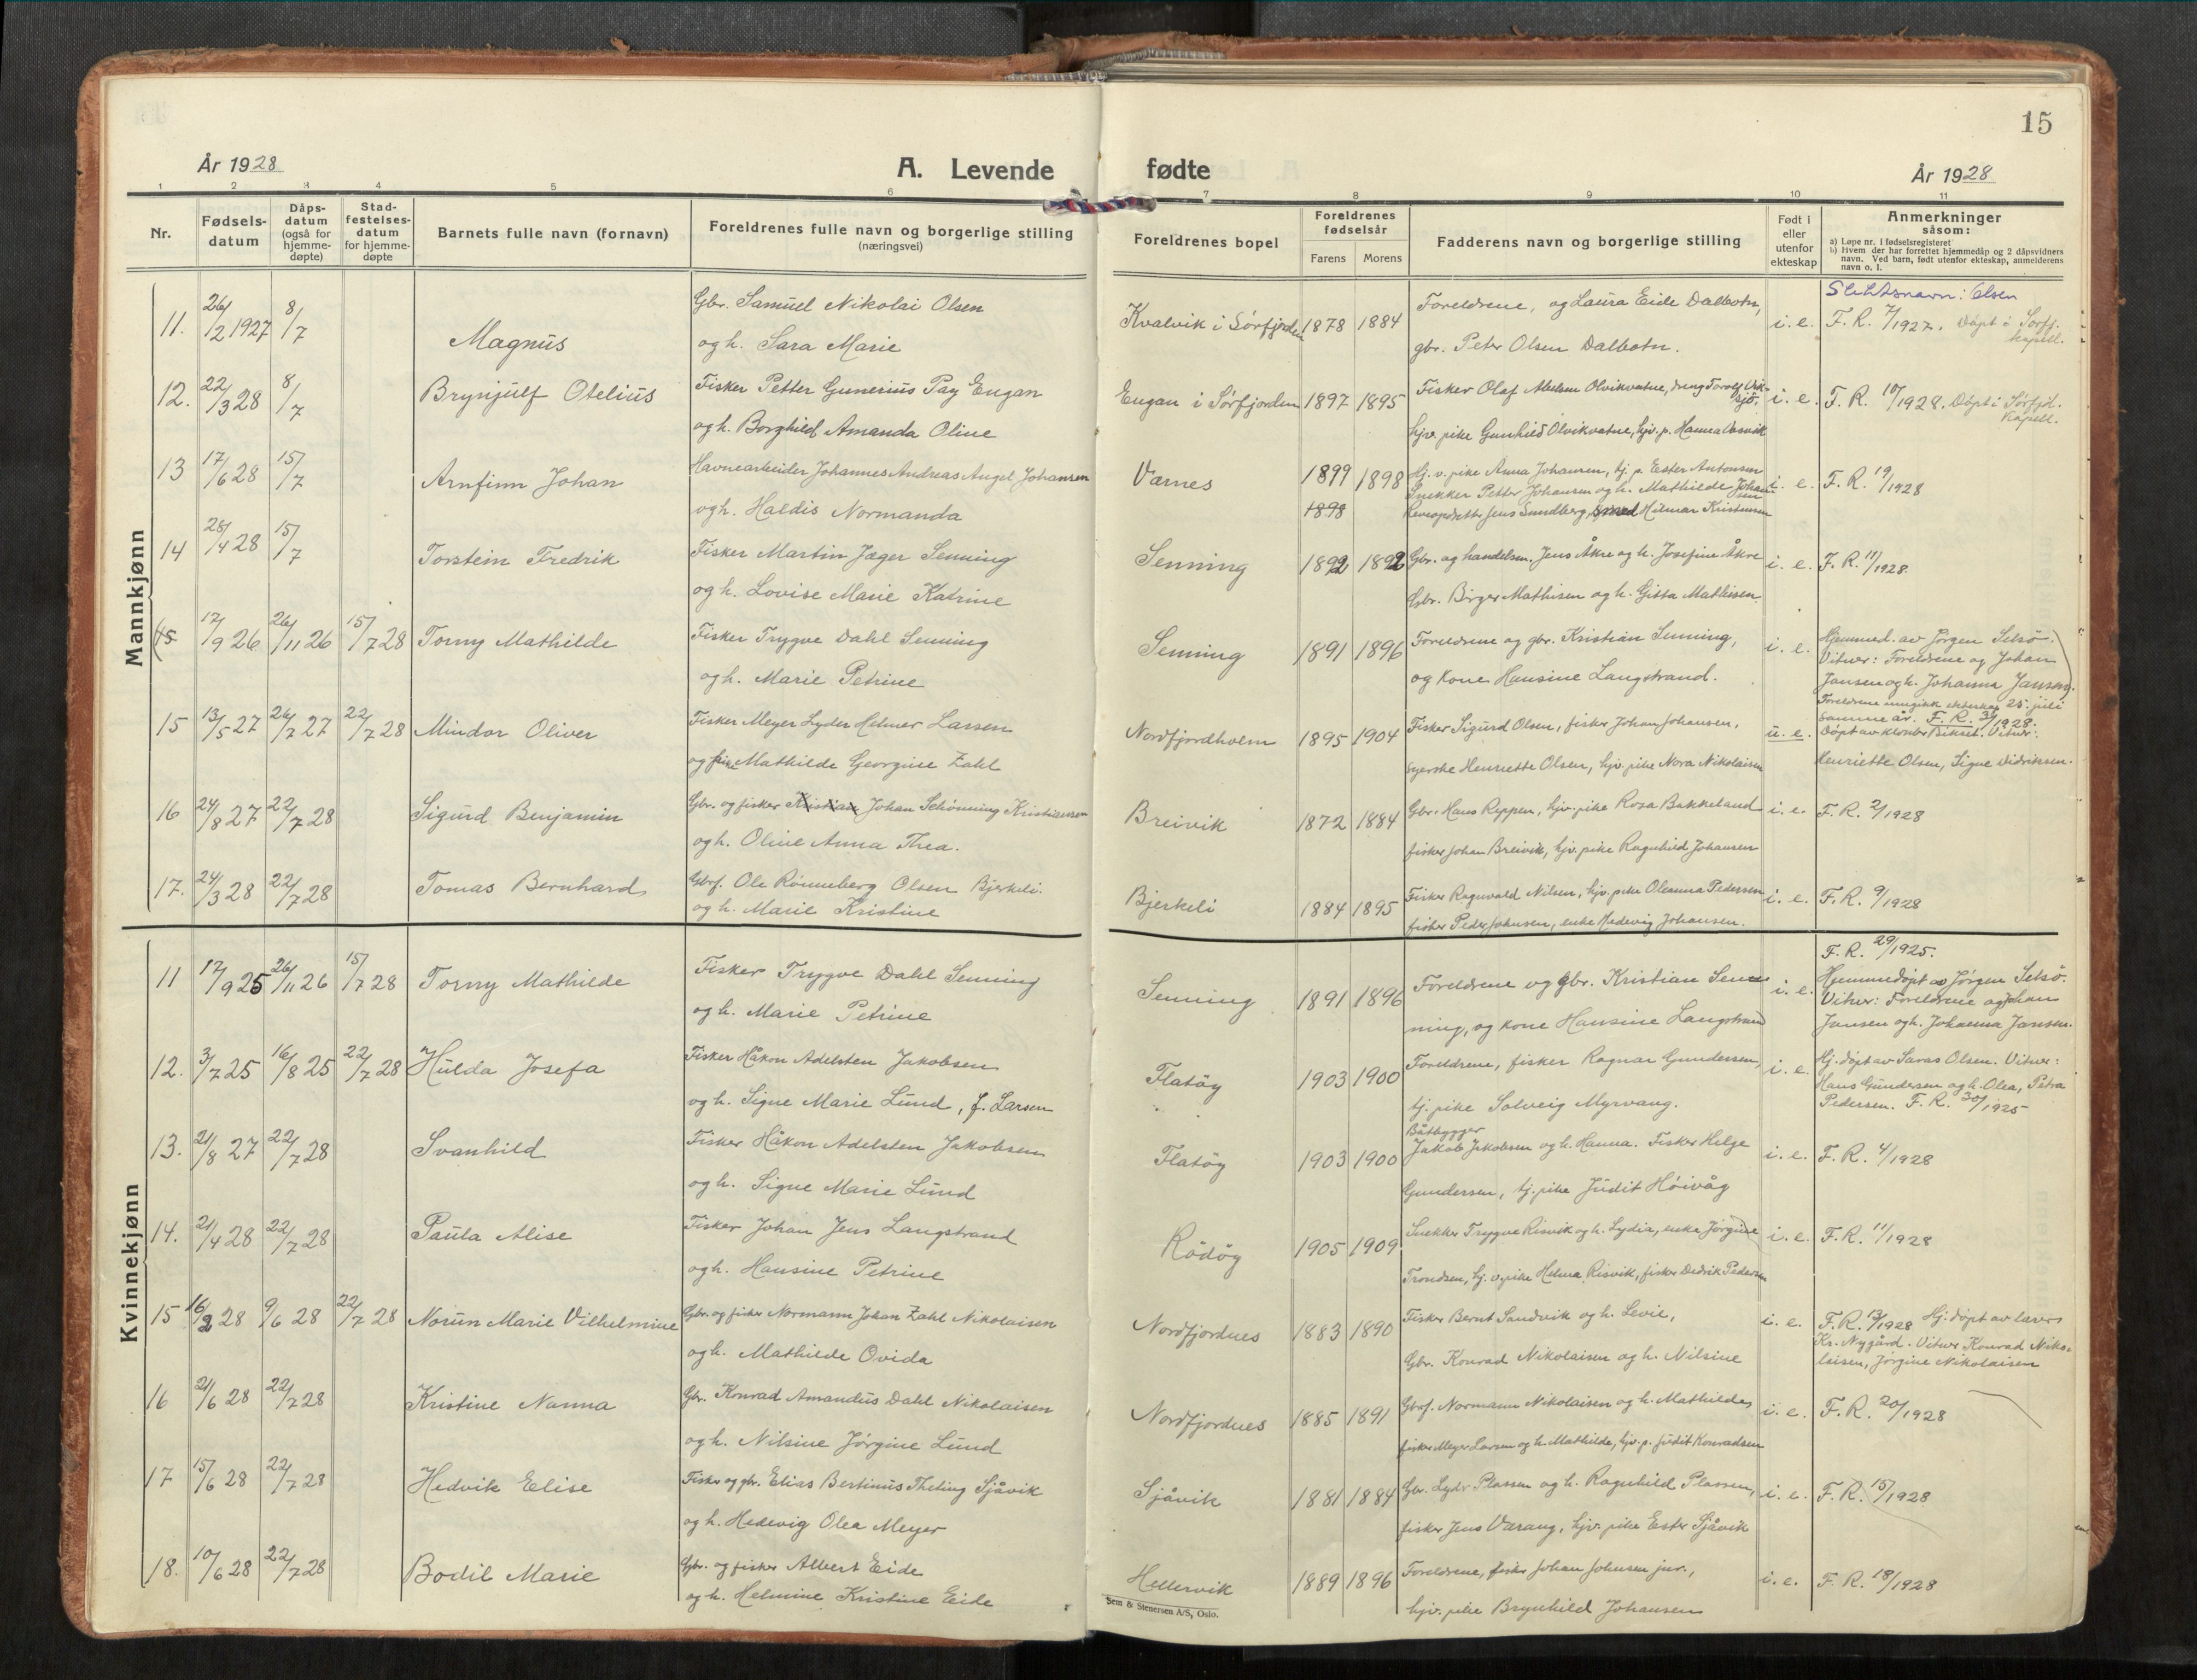 15
År 1928
A. Levende fødte
År 1928
1 2 3 4 5 6 7 8 9 10 11
Nr.
Fødsels-datum
Dåps-datum (også for hjemme-døpte)
Stad-festelses-datum for hjemme-døpte
Barnets fulle navn (fornavn)
Foreldrenes fulle navn og borgerlige stilling (næringsvei)
Foreldrenes bopel
Foreldrenes fødselsår
Farens Morens
Fadderens navn og borgerlige stilling
Født i eller utenfor ekteskap
Anmerkninger såsom:
a) Løpe nr. i fødselsregisteret
b) Hvem der har forrettet hjemmedåp og 2 dåpsvidners navn. Ved barn, født utenfor ekteskap, anmelderens navn o. l.
Mannkjønn
11. 26/2 1927 8/7 Magnus
Gbr. Samuel Nikolai Olsen
og h. Sara Marie
Kvalvik i Sørfjorden 1878 1884
Foreldrene, og Laura Eide Dalbotn,
gbr. Peter Olsen Dalbotn.
i. e.
Slektsnavn: Olsen
F. R. 7/1927. Døpt i Sørfj. kapell.
12. 22/3 28 8/7 Brynjulf Otelius
Fisker Petter Gunerius Pay Engan
og h. Borghild Amanda Oline
Engan i Sørfjorden 1897 1895
Fisker Olaf Olvikvatne, dreng Torolf
hjv. pike Gunhild Olvikvatne, hjv. p. Hanna
i. e.
F. R. 10/1928. Døpt i Sørfjd. Kapell.
13 17/6 28 15/7 Arnfinn Johan
Havnearbeider Johannes Andreas Angel Johansen
og h. Haldis Normanda
Værnes 1899 1898
1898
Hj. v. pike Anna Johansen, tj. p. Ester Antonsen
Snekker Petter Johansen og h. Mathilde Johansen
Reveopdretter Jens Sundberg, smed Hilmar Kristensen
i. e.
F. R. 19/1928
14 28/4 28 15/7 Torstein Fredrik
Fisker Martin Jæger Senning
og h. Lovise Marie Katrine
Senning 1892 1892
Gbr. og handelsm. Jens Åkre og h. Josefine Åkre
Gbr. Birger Mathisen og h. Gitta Mathisen.
i. e.
F. R. 11/1928.
(15. 17/9 26 26/11 26 15/7 28 Torny Mathilde
Fisker Trygve Dahl Senning
og h. Marie Petrine
Senning 1891 1896
Foreldrene og gbr. Kristian Senning,
og kone Hansine Langstrand.
i. e.
Hjemmed. av Jørgen Selsö.
Vitner: Foreldrene og Johan
Jansen og h. Johanna Jansen.)
15 13/5 27 26/7 27 22/7 28 Mindor Oliver
Fisker Meyer Lyder Helmer Larsen
og pike Mathilde Georgine Zahl
Nordfjordholm 1895 1904
Fisker Sigurd Olsen, fisker Johan Johansen,
syerske Henriette Olsen, hjv. pike Nora Nikolaisen
u. e.
Foreldrene inngikk ekteskap 25. juli
samme år. F. R. 31/1928.
Døpt av Vitner:
Henriette Olsen, Signe Didriksen.
16 24/8 27 22/7 28 Sigurd Benjamin
Gbr. og fisker Kristian Johan Schønning Kristiansen
og h. Oline Anna Thea.
Breivik 1872 1884
Gbr. Hans Reppen, hjv. pike Rosa Bakkeland
fisker Johan Breivik, hjv. pike Ragnhild Johansen
i. e.
F. R. 2/1928
17. 24/3 28 22/7 28 Tomas Bernhard
Gbrf. Ole Rønneberg Olsen Bjerkeli.
og h. Marie Kristine
Bjerkeli 1884 1895
Fisker Ragnvald Nilsen, hjv. pike Oleanna Pedersen
fisker Peder Johnsen, enke Hedevig Johansen.
i. e.
F. R. 9/1928
Kvinnekjønn
11 17/9 25 26/11 26 15/7 28 Torny Mathilde
Fisker Trygve Dahl Senning
og h. Marie Petrine
Senning 1891 1896
Foreldrene og gbr. Kristian Senn
ning, og kone Hansine Langstrand
i. e.
F. R. 29/1925.
Hjemmedøpt av Jørgen Selsö.
Vitner: Foreldrene og Johan
Jansen og h. Johanna Jansen.
12. 3/7 25 16/8 25 22/7 28 Hulda Josefa
Fisker Håkon Adelsten Jakobsen
og h. Signe Marie Lund, f. Larsen
Flatöy 1903 1900
Foreldrene, fisker Ragnar Gundersen,
tj. pike Solveig Myrvang.
i. e.
Hj. døpt av Saras Olsen. Vitner:
Hans Gundersen og h. Olea, Petra
Pedersen. F. R. 30/1925
13. 21/8 27 22/7 28 Svanhild
Fisker Håkon Adelsten Jakobsen
og h. Signe Marie Lund
Flatöy 1903 1900
Båtbygger
Jakob Jakobsen og h. Hanna. Fisker Helge
Gundersen, tj. pike Judit Høivåg
i. e.
F. R. 4/1928
14. 21/4 28 22/7 28 Paula Alise
Fisker Johan Jens Langstrand
og h. Hansine Petrine
Rödöy 1905 1909
Snekker Trygve Risvik og h. Lydia, enke Jørgine
Trondsen, hj. v. pike Helma Risvik, fisker Didrik Pedersen
i. e.
F. R. 11/1928
15 16/2 28 9/6 28 22/7 28 Norun Marie Vilhelmine
Gbr. og fisker Normann Johan Zahl Nikolaisen
og h. Mathilde Ovida
Nordfjordnes 1883 1890
Fisker Bernt Sandvik og h. Levie,
Gbr. Konrad Nikolaisen og h. Nilsine
i. e.
F. R. 13/1928 Hj. døpt av lærer
Kr. Nygård. Vitner Konrad Niko-
laisen, Jørgine Nikolaisen
16 21/6 28 22/7 28 Kristine Nanna
Gbr. Konrad Amandus Dahl Nikolaisen
og h. Nilsine Jørgine Lund
Nordfjordnes 1885 1891
Gbrf. Normann Nikolaisen og h. Mathilde,
fisker Meyer Larsen og h. Mathilde, hjv. p. Judit Konradsen
i. e.
F. R. 20/1928
17 15/6 28 22/7 28 Hedvik Elise
Fisker og gbr. Elias Bertinus Theting Sjåvik
og h. Hedevig Olea Meyer
Sjåvik 1881 1884
Gbr. Lyder Plassen og h. Ragnhild Plassen,
fisker Jens Værang, hjv. pike Ester Sjåvik
i. e.
F. R. 15/1928
18. 10/6 28 22/7 28 Bodil Marie
Gbr. og fisker Albert Eide
og h. Helmine Kristine Eide
Hellervik 1889 1896
Foreldrene, fisker Johan Johnsen jur.,
hjv. pike Brynhild Johansen
i. e.
F. R. 18/1928
Sem & Stenersen A/S, Oslo.